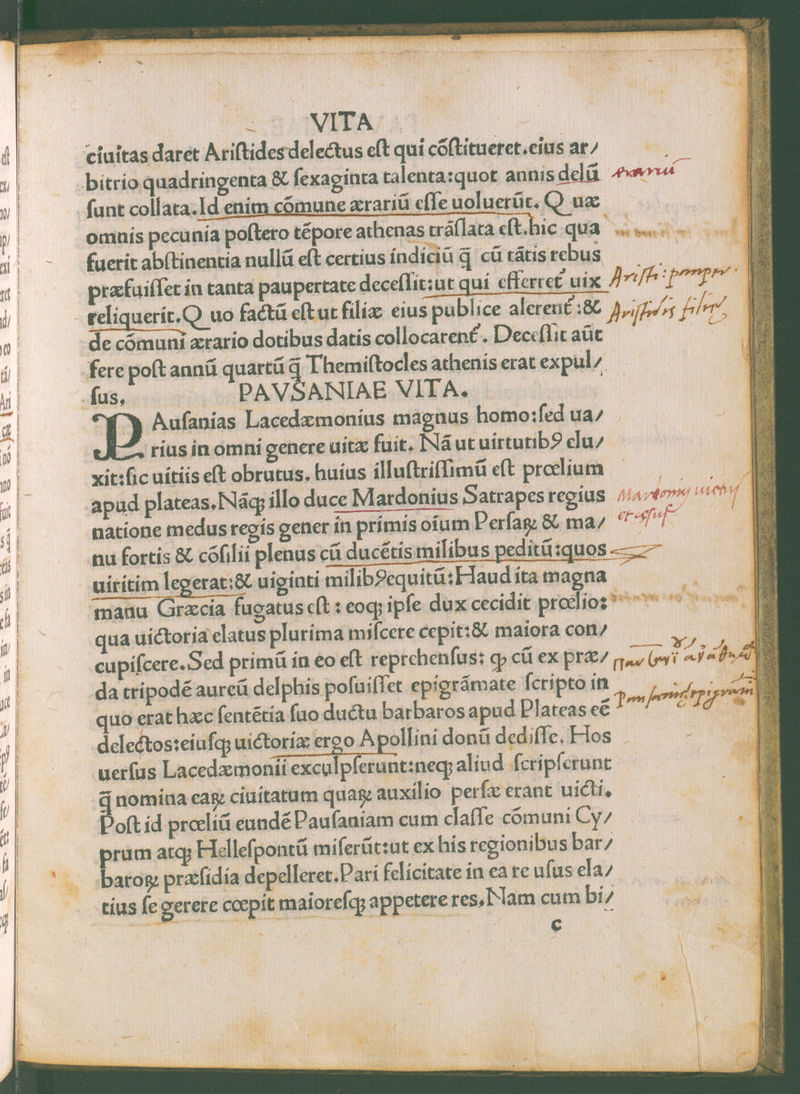 VITA
ciuitas daret Ariſtides delectus eſt qui cõſtitueret.eius ar/
bitrio quadringenta & ſexaginta talenta:quot annis delũ
ſunt collata.Id enim cõmune ærariũ eſſe uoluerũt. Q uæ
omnis pecunia poſtero tẽpore athenas trãſlata eſt.hic qua
fuerit abſtinentia nullũ eſt certius indiciũ q̃ cũ tãtis rebus
præfuiſſet in tanta paupertate deceſſit:ut qui efferret᷑ uix
reliquerit.Q uo factũ eſt ut filiæ eius publice alerent᷑ :&
de cõmuni ærario dotibus datis collocarent᷑. Deceſſit aũt
fere poſt annũ quartũ q̃ Themiſtocles athenis erat expul/
ſus, PAVSANIAE VITA.
P Auſanias Lacedæmonius magnus homo:ſed ua/
rius in omni genere uitæ fuit. Nã ut uirtutibꝰ elu/
xit:ſic uitiis eſt obrutus. huius illuſtriſſimũ eſt prœlium
apud plateas.Nãqꝫ illo duce Mardonius Satrapes regius
natione medus regis gener in primis oĩum Perſaꝝ & ma/
nu fortis & cõſilii plenus cũ ducẽtis milibus peditũ:quos
uiritim legerat:& uiginti milibꝰequitũ:Haud ita magna
manu Græcia fugatus eſt : eoqꝫ ipſe dux cecidit prœlio:
qua uictoria elatus plurima miſcere cepit:& maiora con/
cupiſcere.Sed primũ in eo eſt reprehenſus: ꝙ cũ ex præ/
da tripodẽ aureũ delphis poſuiſſet epigrãmate ſcripto in
quo erat hæc ſentẽtia ſuo ductu barbaros apud Plateas eẽ
delectos:eiuſqꝫ uictoriæ ergo Apollini donũ dediſſe. Hos
uerſus Lacedæmonii exculpſerunt:neqꝫ aliud ſcripſerunt
q̃ nomina eaꝝ ciuitatum quaꝝ auxilio perſæ erant uicti,
Poſt id prœliũ eundẽ Pauſaniam cum claſſe cõmuni Cy/
prum atqꝫ Helleſpontũ miſerũt:ut ex his regionibus bar/
baroꝝ præſidia depelleret.Pari felicitate in ea re uſus ela/
tius ſe gerere cœpit maioreſqꝫ appetere res,Nam cum bi/
c
ærariũ
Mardonius